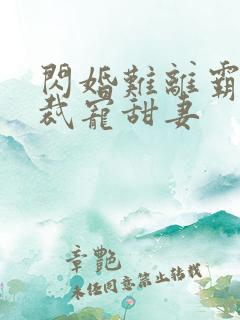 閃婚難離霸
裁寵甜妻
章艷
未任同意禁止轉載